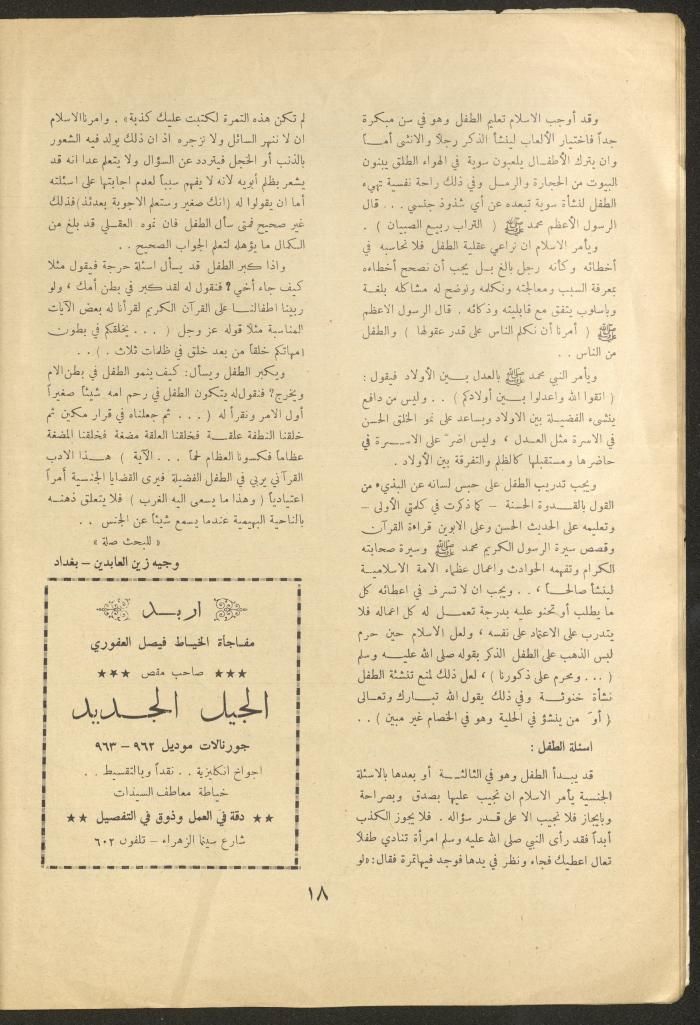 وقد أوجب الاسلام تعليم الطفل وهو في سن مبكرة
جداً فاختيار الألعاب لينشأ الذكر رجلاً والانثى أمــاً
وان يترك الأطفــال يلعبون سوية في الهواء الطلق يبنون
البيوت من الحجارة والرمــل وفي ذلك راحة نفسية تهيء
الطفل لنشأة سوية تبعده عن أي شذوذ جنسي . . . قال
الرسول الأعظم محمد ﷺ ( التراب ربيع الصبيان ) .
ويأمر الاسلام ان نراعي عقلية الطفل فلا نحاسبه في
أخطائه وكأنه رجل بالغ بــل يجب أن نصحح أخطاءه
بمعرفة السبب ومعالجته ونكلمه ونوضح له مشاكله بلغــة
وباسلوب يتفق مع قابليته وذكائه . قال الرسول الاعظم
ﷺ ( أمرنا أن نكلم الناس على قدر عقولها ) والطفل
من الناس . .
ويأمر النبي محمد ﷺ بالعدل بــين الأولاد فيقول :
( اتقوا الله واعدلوا بــين أولادكم ) . . وليس من دافع
ينشىء الفضيــلة بين الاولاد ويساعد على نمو الخلق الحسن
في الاسرة مثل العــدل ، وليس اضرّ على الاســرة في
حاضرها ومستقبلها كالظلم والتفرقة بين الأولاد .
ويجب تدريب الطفل على حبس لسانه عن البذيء من
القول بالقــدوة الحسنة – كما ذكرت في كلمتي الأولى –
وتعليمه على الحديث الحسن وعلى الابوين قراءة القرآن
وقصص سيرة الرسول الكريم محمد ﷺ وسيرة صحابته
الكرام وتفهمه الحوادث واعمال عظماء الامة الاسلاميــة
لينشأ صالحــاً ، . . ويجب ان لا تسرف في اعطائه كل
ما يطلب أو تحنو عليه بدرجة تعمــل له كل اعماله فلا
يتدرب على الاعتماد على نفسه ، ولعل الاسلام حين حرم
لبس الذهب على الطفل الذكر بقوله صلى الله عليــه وسلم
( . . . ومحرم على ذكورنا ) ، لعل ذلك لمنع تنشئة الطفل
نشأة خنوثــة وفي ذلك يقول الله تبــارك وتعــالى
( أوَ من ينشؤ في الحلية وهو في الخصام غير مبين ) . .
اسئلة الطفل :
قد يبــدأ الطفل وهو في الثالثــة أو بعدها بالاسئلة
الجنسية يأمر الاسلام ان نجيب عليها بصدق وبصراحة
وبايجاز فلا نجيب الا على قــدر سؤاله . فلا يجوز الكذب
أبداً فقد رأى النبي صلى الله عليه وسلم امرأة تنادي طفلاً
تعال اعطيك فجاء ونظر في يدها فوجد فيها تمرة فقال: «لو
لم تكن هذه التمرة لكتبت عليك كذبة» . وامرنا الاسلام
ان لا ننهر السائل ولا نزجره اذ ان ذلك يولد فيه الشعور
بالذنب أو الخجل فيتردد عن السؤال ولا يتعلم عدا انه قد
يشعر بظلم أبويه لأنه لا يفهم سبباً لعدم اجابتها على اسئلته
أما ان يقولوا له (انك صغير وستعلم الاجوبة بعدئذ) فذلك
غير صحيح فمتى سأل الطفل فان نموه العقــلي قد بلغ من
الكمال ما يؤهله لتعلم الجواب الصحيح . .
واذا كبر الطفل قد يسأل اسئلة حرجة فيقول مثلا
كيف جاء أخي ؟ فنقول له لقد كبر في بطن أمك ، ولو
ربينا اطفالنــا على القرآن الكريم لقرأنا له بعض الآيات
المناسبة مثلا قوله عز وجل ( . . . يخلقكم في بطون
امهاتكم خلقاً من بعد خلق في ظلمات ثلاث . ) . .
ويكبر الطفل ويسأل: كيف ينمو الطفل في بطن الام
ويخرج؟ فنقول له يتكون الطفل في رحم امه شيئاً صغيراً
أول الامر ونقرأ له ( . . . ثم جعلناه في قرار مكين ثم
خلقنا النطفة علقــة فخلقنا العلقة مضغة فخلقنا المضغة
عظاماً فكسونا العظام لحماً . . . الآية ) هــذا الادب
القرآني يربي في الطفل الفضيلة فيرى القضايا الجنسية أمراً
اعتيادياً ( وهذا ما يسعى اليه الغرب ) فلا يتعلق ذهنــه
بالناحية البهيمية عندما يسمع شيئاً عن الجنس . .
« للبحث صلة »
وجيه زين العابدين – بغداد
اربــد
مفــاجأة الخيــاط فيصل العفوري
★★★ صاحب مقص ★★★
الجيل الجــديد
جورنالات موديل ٩٦٢ – ٩٦٣
اجواخ انكليزية . . نقداً وبالتقسيط . .
خياطة معاطف السيدات
★★ دقة في العمل وذوق في التفصيل ★★
شارع سينما الزهراء – تلفون ٦٠٢
١٨